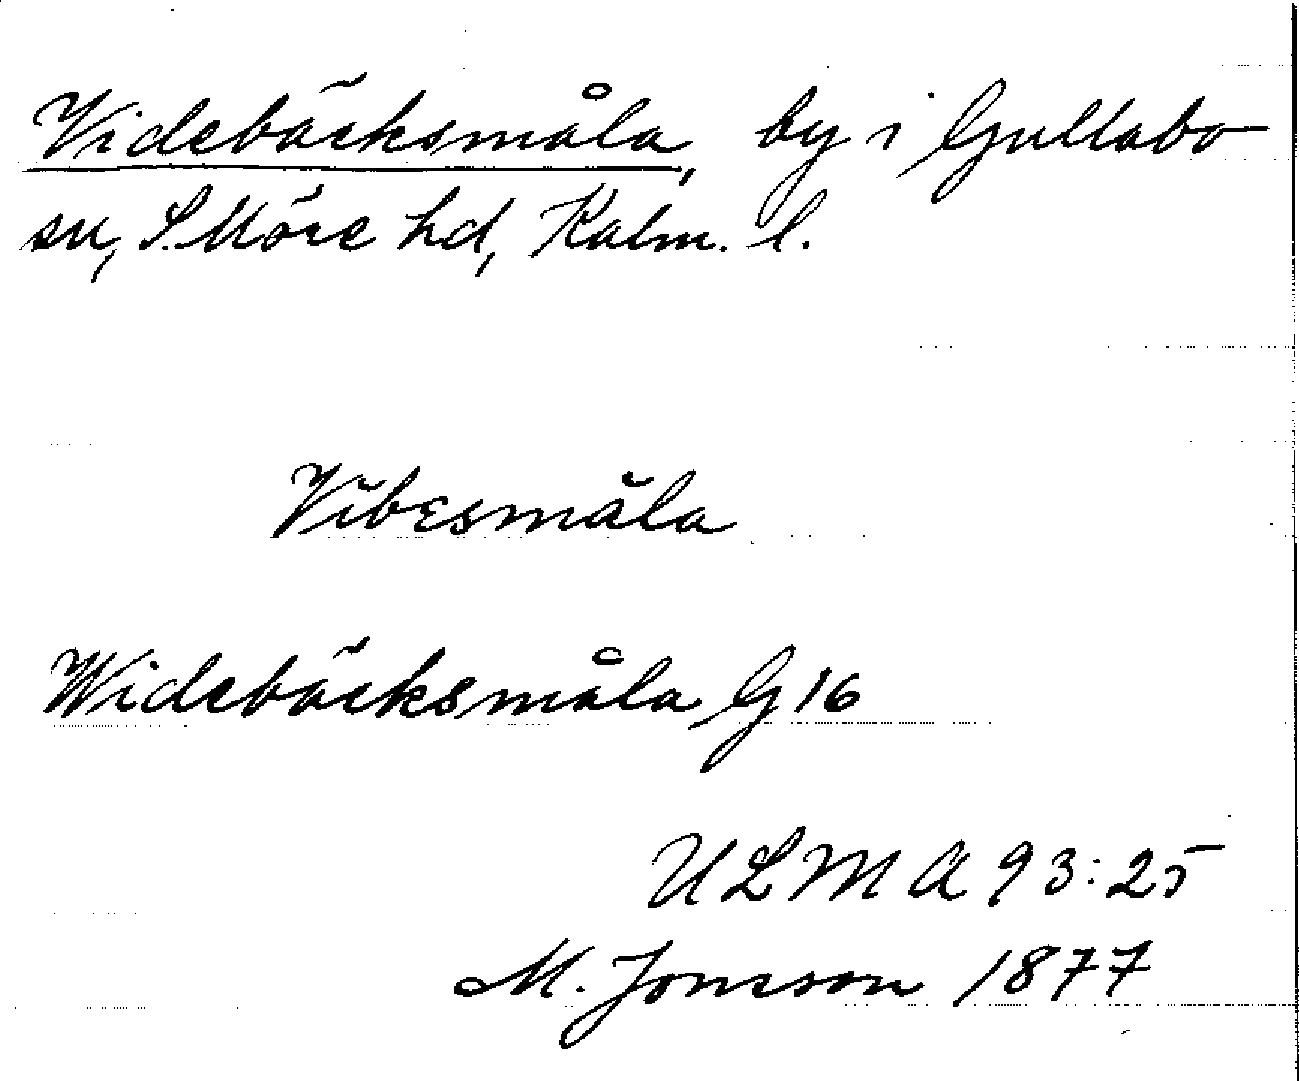 Videbäcksmåla, by i Gullabo
sn, S. Möre hd, Kalm. l.
Vibesmåla
Widebäcksmåla G 16
ULMA 93:25
M. Jonsson 1877